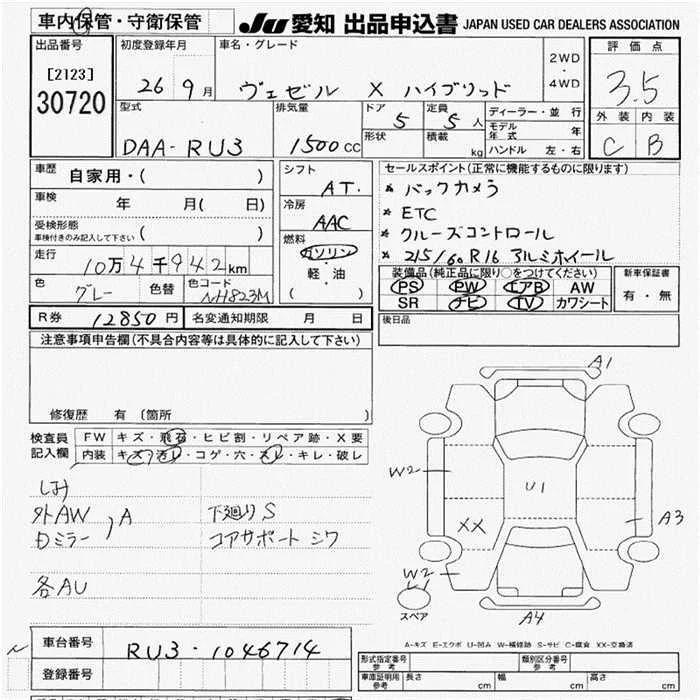 車内保管・守衛保管
JU 愛知 出品申込書 JAPAN USED CAR DEALERS ASSOCIATION
出品番号
[2123]
30720
初度登録年月
26 9月
車名・グレード
ヴェゼル X ハイブリッド
2WD
・
4WD
評価点
3.5
外装 内装
C B
型式
DAA-RU3
排気量
1500cc
ドア
5
定員
5人
形状
積載
kg
ディーラー・並行
モデル年式 年
ハンドル 左・右
車歴
自家用・( )
車検
年 月( 日)
受検形態
車検付きのみ記入して下さい ( )
走行
10万4千942km
色
グレー
色替
色コード
NH823M
シフト
AT.
冷房
AAC
燃料
ガソリン
・
軽・油
( )
セールスポイント(正常に機能するものに限ります)
* バックカメラ
* ETC
* クルーズコントロール
* 215/60R16 アルミホイール
装備品(純正品に限り○をつけてください)
PS PW エアB AW
SR ナビ TV カワシート
新車保証書
有・無
R券 12850円 名変通知期限 月 日
後日品
注意事項申告欄(不具合内容等は具体的に記入して下さい)
修復歴 有 (箇所 )
検査員記入欄
FW キズ・飛石・ヒビ割・リペア跡・X要
内装 キズ・汚レ・コゲ・穴・スレ・キレ・破レ
外AW
Dミラー
, A
各AU
下廻りS
コアサポート シワ
A1
W2
U1
XX
A3
W2
スペア
A4
A-キズ E-エクボ U-凹み W-補修跡 S-サビ C-腐食 XX-交換済
車台番号 RU3-1046714
登録番号
形式指定番号
参考
類別区分番号
参考
車庫証明用
参考
長さ cm 幅 cm 高さ cm